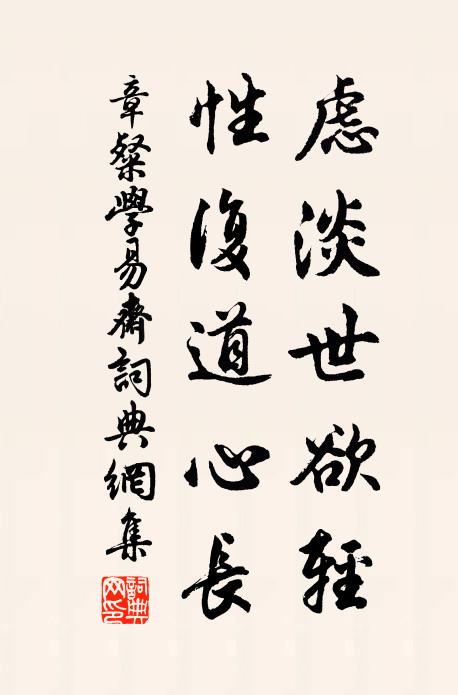 慮淡世欲輕
性復道心長
章粲學易齋詞典網集
詞典
网印